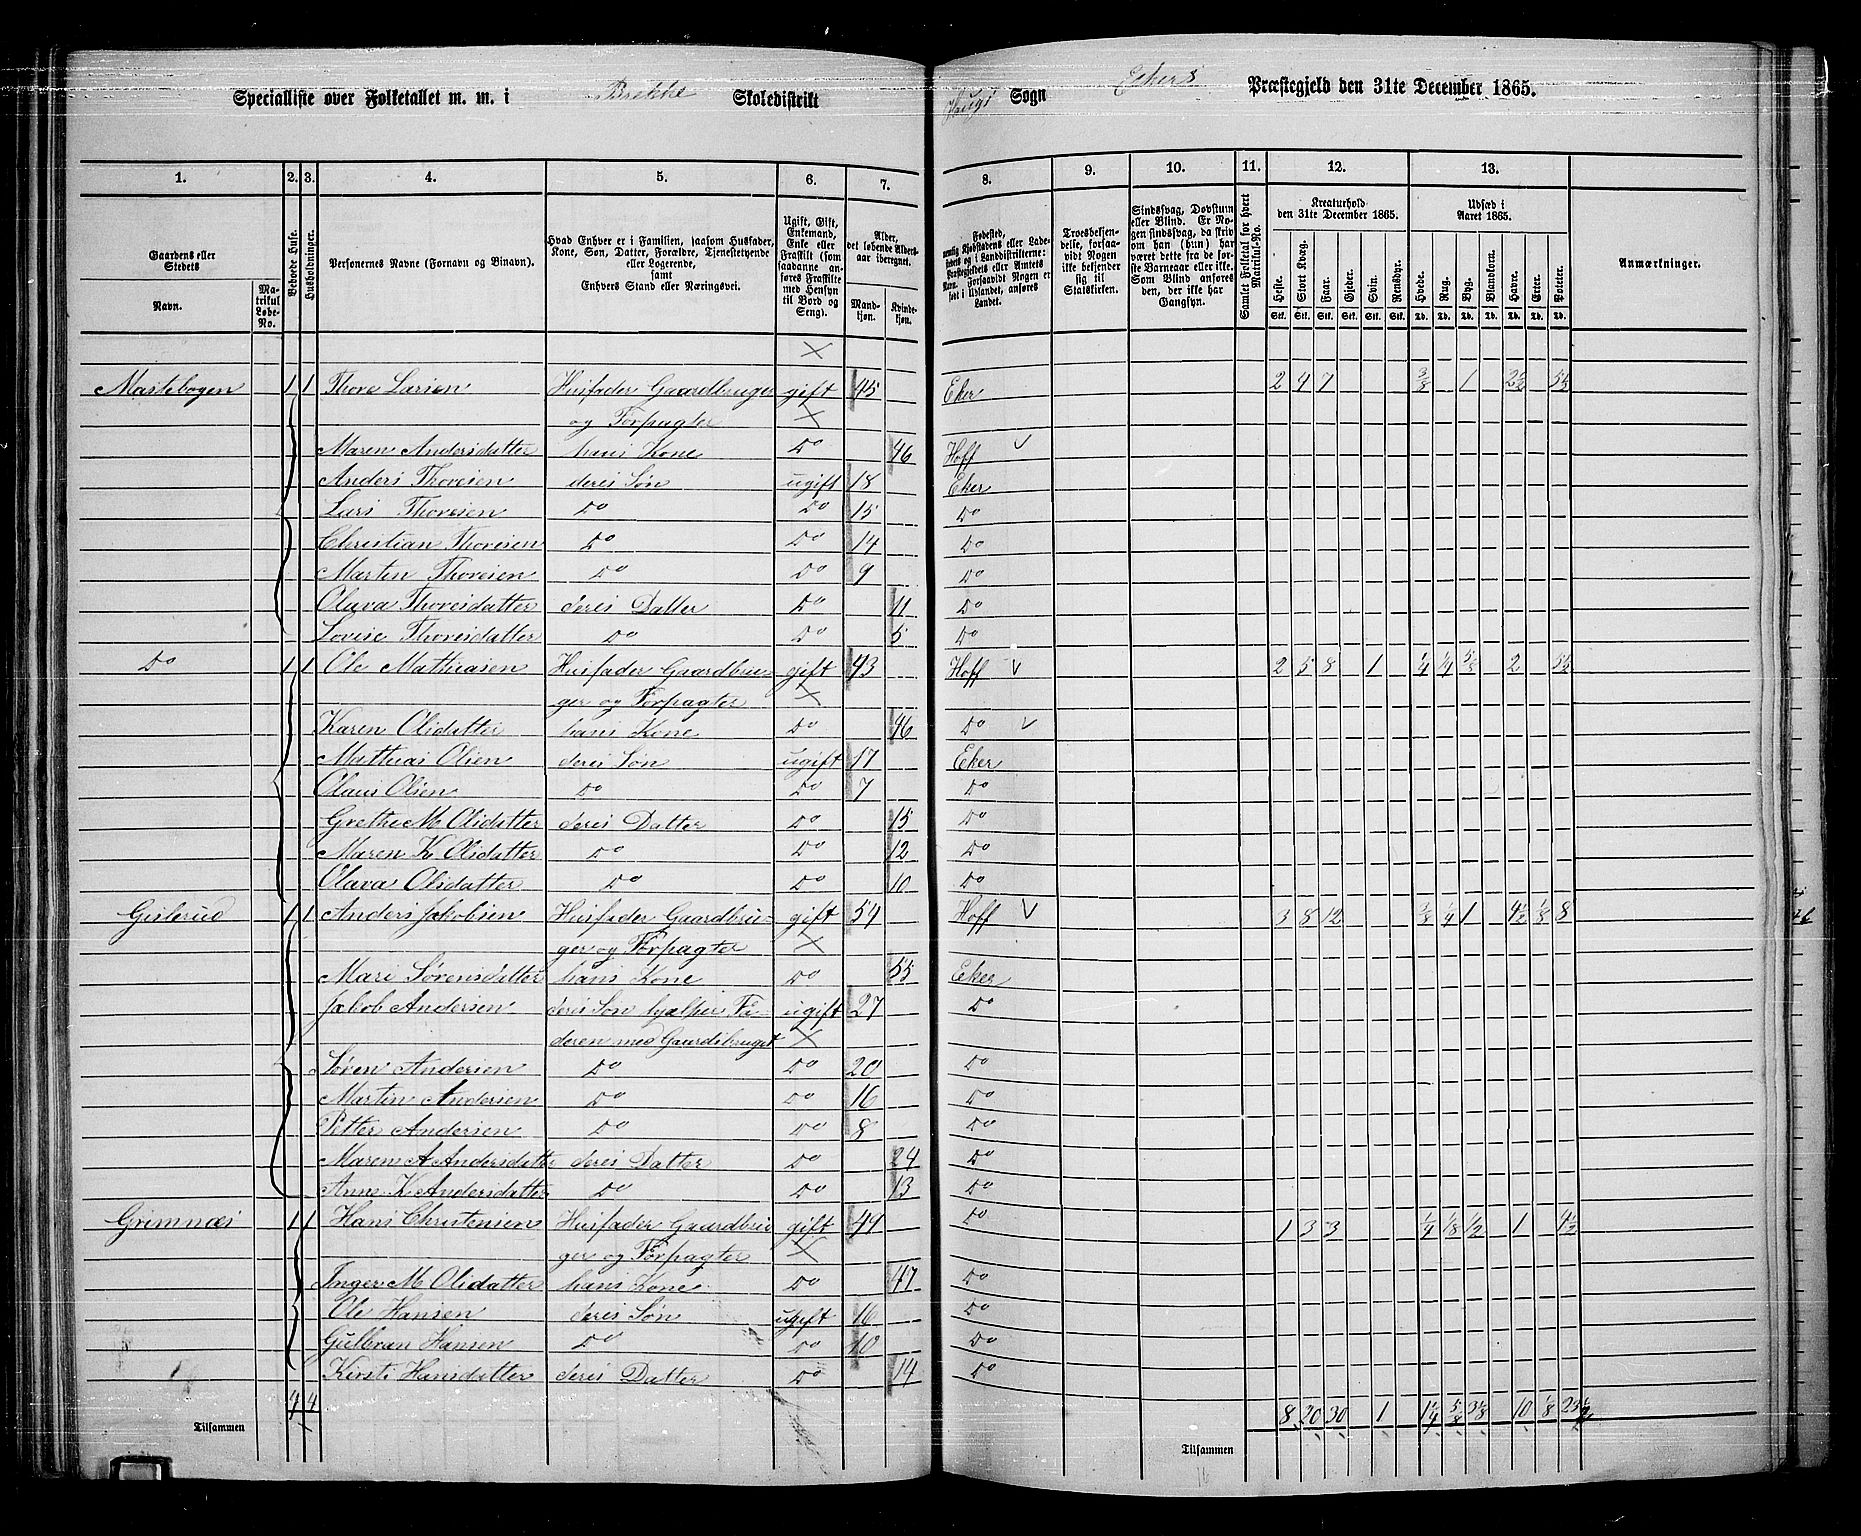 Specialliste over Folketallet m. m. i Brekke Skoledistrikt Haugs Sogn Ekers Præstegjeld den 31te December 1865.
1. 2. 3. 4. 5. 6. 7. 8. 9. 10. 11. 12. 13.
Gaardens eller Stedets
Navn.
Matrikul Løbe-No.
Beboede Huse.
Husholdninger.
Personernes Navne (Fornavn og Binavn).
Hvad Enhver er i Familien, saasom Husfader, Kone, Søn, Datter, Forældre, Tjenestetyende eller Logerende, samt Enhvers Stand eller Næringsvei.
Ugift, Gift, Enkemand, Enke eller Fraskilt (som saadanne anføres Fraskilte med Hensyn til Bord og Seng).
Alder, det løbende Aldersaar iberegnet.
Mandkjøn.
Kvindekjøn.
Fødested,
Troesbekjendelse, forsaavidt Nogen ikke bekjender sig til Statskirken.
Sindssvag, Døvstum eller Blind. Er Nogen sindssvag, da skrives om han (hun) har været dette fra de første Barneaar eller ikke. Som Blind anføres den, der ikke har Gangsyn.
Samlet Folketal for hvert Matrikul-No.
Kreaturhold den 31te December 1865.
Heste. Stort Kvæg. Faar. Gjeder. Svin. Rensdyr.
Stk. Stk. Stk. Stk. Stk. Stk.
Udsæd i Aaret 1865.
Hvede. Rug. Byg. Blandkorn. Havre. Erter. Poteter.
Td. Td. Td. Td. Td. Td. Td.
Anmærkninger.
Mastebogen 1 1 Thore Larsen Husfader Gaardbruger gift 45 Eker 2 4 7 3/8 1 2 1/2 5 1/2
og Forpagter
Maren Andersdatter hans Kone Do 46 Hoff
Anders Thoresen deres Søn ugift 18 Eker
Lars Thoresen Do Do 15 Do
Christian Thoresen Do Do 14 Do
Martin Thoresen Do Do 9 Do
Olava Thoresdatter deres Datter Do 11 Do
Lovise Thoresdatter Do Do 5 Do
Do 1 1 Ole Mathiasen Husfader Gaardbru- gift 43 Hoff 2 5 8 1 1/4 1/4 5/8 2 5 1/2
ger og Forpagter
Karen Olsdatter hans Kone Do 46 Do
Mathias Olsen deres Søn ugift 17 Eker
Olaus Olsen Do Do 7 Do
Grethe M. Olsdatter deres Datter Do 15 Do
Maren K. Olsdatter Do Do 12 Do
Olava Olsdatter Do Do 10 Do
Gislerud 1 1 Anders Jakobsen Husfader Gaardbru- gift 54 Hoff 3 8 12 3/8 1/4 1 4 1/2 1/8 8
ger og Forpagter
Mari Sørensdatter hans Kone Do 55 Eker
Jakob Andersen deres Søn hjælper Fa- ugift 27 Do
deren med Gaardsbruget
Søren Andersen Do Do 20 Do
Martin Andersen Do Do 16 Do
Petter Andersen Do Do 8 Do
Maren A Andersdatter deres Datter Do 24 Do
Anne K Andersdatter Do Do 13 Do
Grimnæs 1 1 Hans Christensen Husfader Gaardbru- gift 49 Do 1 3 3 1/4 1/8 1/2 1 4 1/2
ger og Forpagter
Inger M Olsdatter hans Kone Do 47 Do
Ole Hansen deres Søn ugift 16 Do
Gulbran Hansen Do Do 10 Do
Kirsti Hansdatter deres Datter Do 14 Do
Tilsammen 4 4 Tilsammen 8 20 30 1 1 1/4 5/8 3 1/8 10 1/8 23 1/2